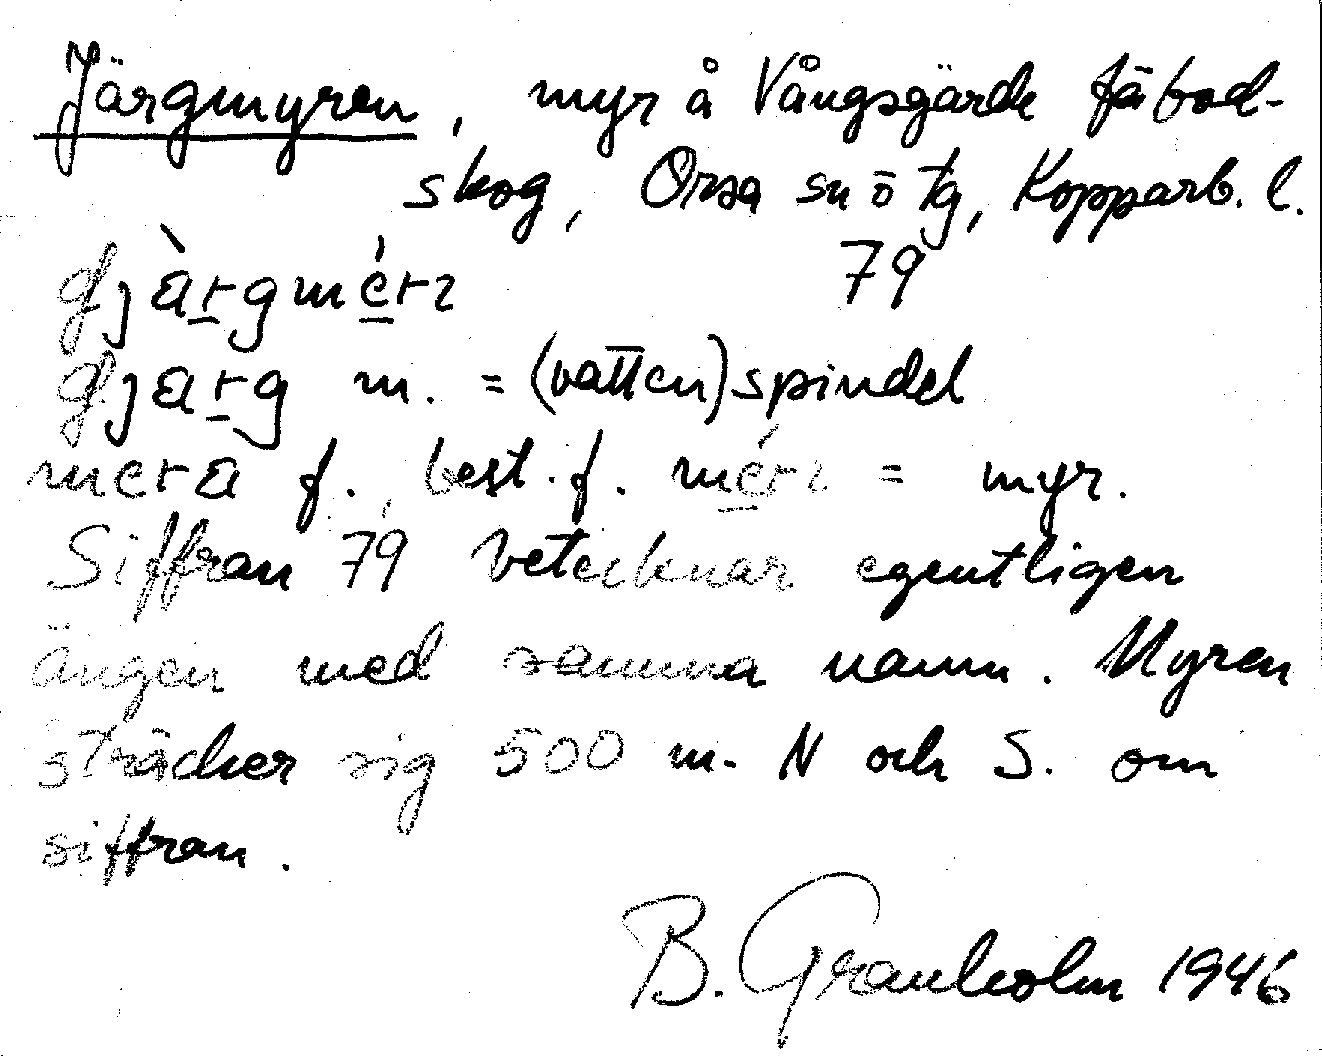 Järgmyren, myr å Vångsgärde fäbod-
skog, Orsa sn ö tg, Kopparb. l.
79
djàrgmérɩ
djarg m. = (vatten)spindel
mera f., best. f. mérɩ = myr.
Siffran 79 betecknar egentligen
ängen med samma namn. Myren
sträcker sig 500 m. N och S. om
siffran.
B. Granholm 1946